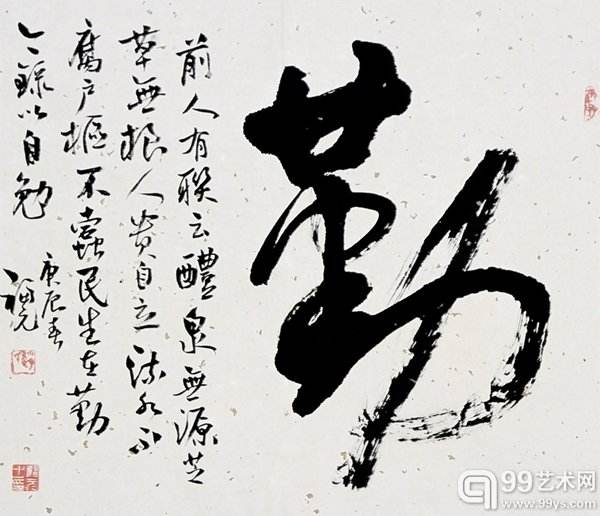 勤
前人有联云醴泉無源芝
草無根人贵自立流水不
腐户枢不蠹民生在勤
今録以自勉
庚辰春
99艺术网
www.99ys.com